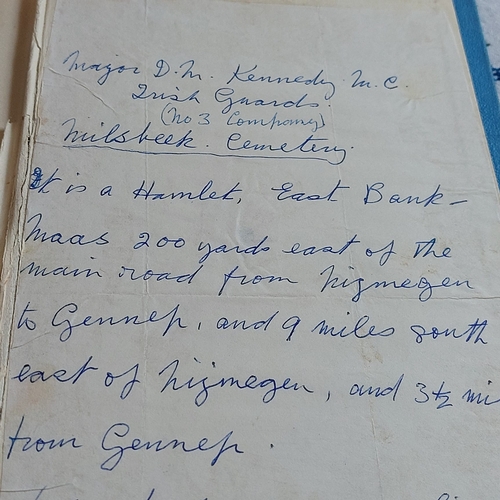 Major D.M. Kennedy M.C.
Irish Guards.
(No 3 Company)
Milsbeek. Cemetery.
It is a Hamlet, East Bank-
Maas 200 yards east of the
main road from Nijmegen
to Gennep, and 9 miles south
east of Nijmegen, and 3½ mi
from Gennep.